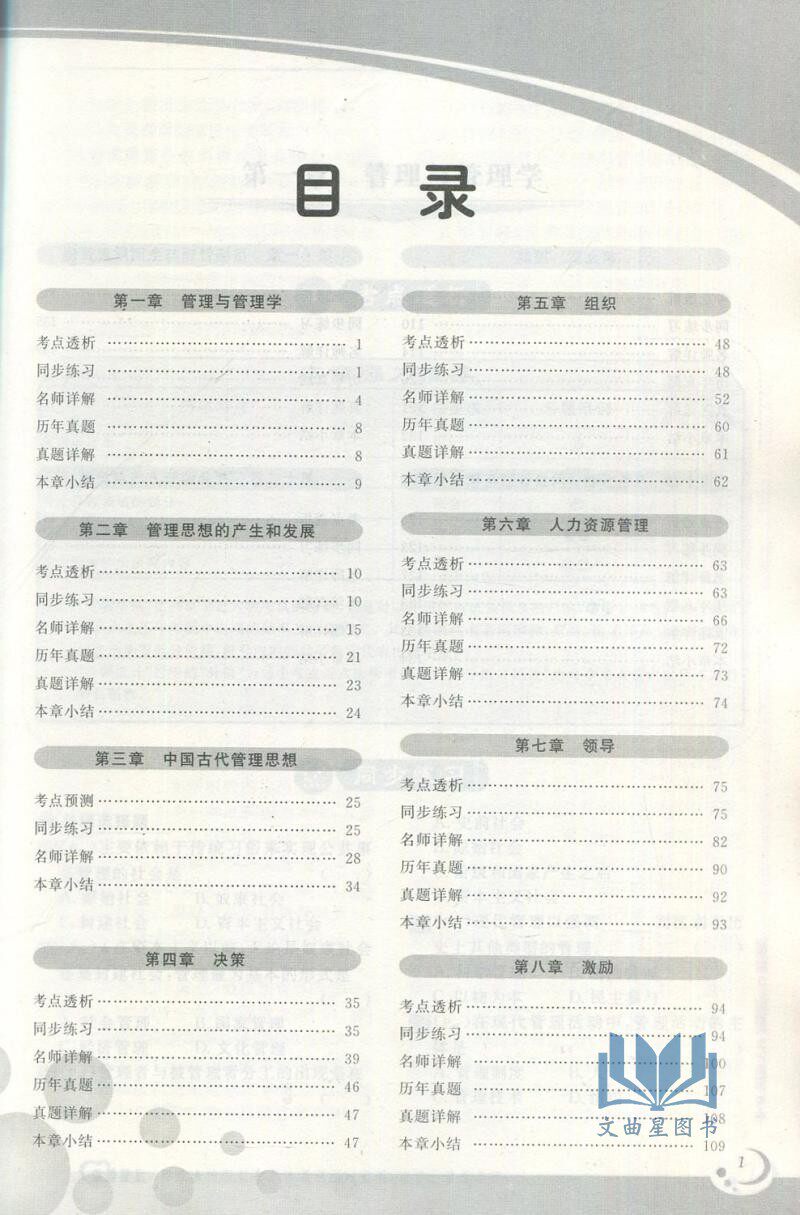 目 录
第一章 管理与管理学
考点透析 …………………………… 1
同步练习 …………………………… 1
名师详解 …………………………… 4
历年真题 …………………………… 8
真题详解 …………………………… 8
本章小结 …………………………… 9
第二章 管理思想的产生和发展
考点透析 …………………………… 10
同步练习 …………………………… 10
名师详解 …………………………… 15
历年真题 …………………………… 21
真题详解 …………………………… 23
本章小结 …………………………… 24
第三章 中国古代管理思想
考点预测 …………………………… 25
同步练习 …………………………… 25
名师详解 …………………………… 28
本章小结 …………………………… 34
第四章 决策
考点透析 …………………………… 35
同步练习 …………………………… 35
名师详解 …………………………… 39
历年真题 …………………………… 46
真题详解 …………………………… 47
本章小结 …………………………… 47
第五章 组织
考点透析 …………………………… 48
同步练习 …………………………… 48
名师详解 …………………………… 52
历年真题 …………………………… 60
真题详解 …………………………… 61
本章小结 …………………………… 62
第六章 人力资源管理
考点透析 …………………………… 63
同步练习 …………………………… 63
名师详解 …………………………… 66
历年真题 …………………………… 72
真题详解 …………………………… 73
本章小结 …………………………… 74
第七章 领导
考点透析 …………………………… 75
同步练习 …………………………… 75
名师详解 …………………………… 82
历年真题 …………………………… 90
真题详解 …………………………… 92
本章小结 …………………………… 93
第八章 激励
考点透析 …………………………… 94
同步练习 …………………………… 94
名师详解 …………………………… 100
历年真题 …………………………… 107
真题详解 …………………………… 108
本章小结 …………………………… 109
文曲星图书
1